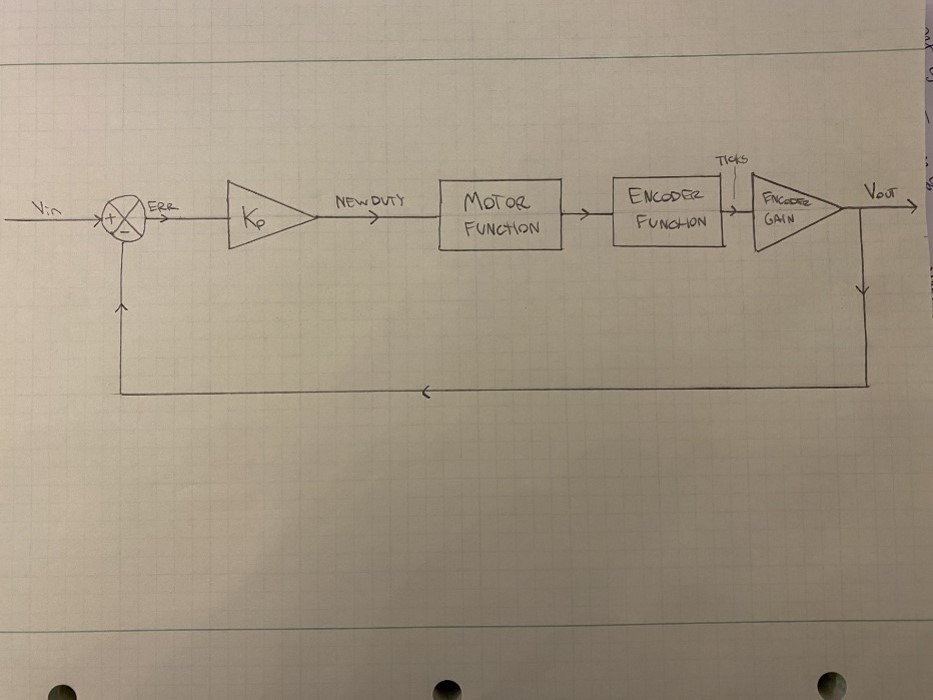 Vin
+
-
ERR
Kp
NEW DUTY
MOTOR
FUNCTION
ENCODER
FUNCTION
TICKS
ENCODER
GAIN
VOUT